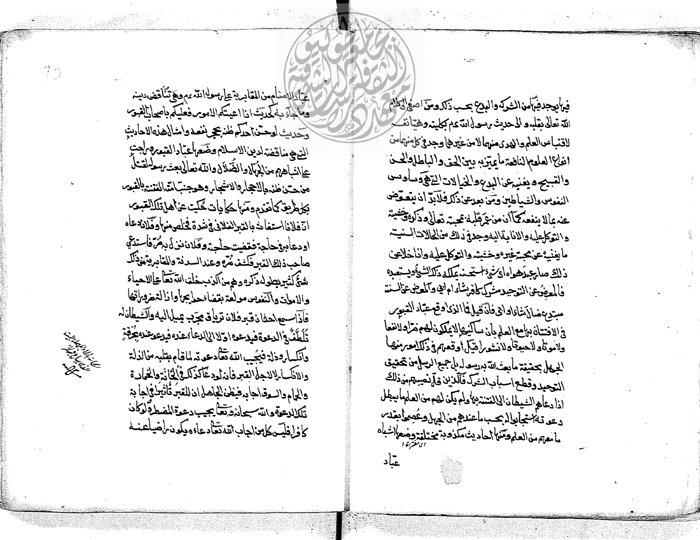 فيما يوجد فيها من الشرك والبدع بحسب ذلك ومن اصغى الى كلام
الله تعالى بقلبه والى حديث رسول الله عم بكليته وهيأ نفسه
لاقتباس العلم والهدى منهما لا من غيرهما وجد في كل منهما من
انواع العلوم النافعة ما يميز به بين الحق والباطل والحسن
والقبيح ويغنيه عن البدع والخيالات التي هي وساوس
النفوس والشياطين ومن بعد عن ذلك فلا بد ان يتعوض
عنه بما لا ينفعه كما ان من عمر قلبه بمحبة تعالى وذكره وخشيته
والتوكل عليه والانابة اليه وجد في ذلك من الحالات السنية
ما يغنيه عن محبة غيره وخشيته والتوكل عليه واذا خلا عن
ذلك صار عبد هواه اي شيء استحسنه يملكه ذلك الشيء ويستعبده
فالمعرض عن التوحيد مشرك كافر شاء ام ابى والمعرض عن السنة
مبتدع ضال شاء او ابى فان قيل فما الذي اوقع عباد القبور
في الافتتان بها مع العلم بان ساكنيها لا يملكون لهم ضرا ولا نفعا
ولا موتا ولا حيوة ولا نشورا قيل اوقعهم في ذلك امور منها
الجهل بحقيقة ما بعث الله به رسوله بل جميع الرسل من تحقيق
التوحيد وقطع اسباب الشرك فالذين قل نصيبهم من ذلك
اذا دعاهم الشيطان الى الفتنة بها ولم يكن لهم من العلم ما يبطل
دعوته استجابوا له بحسب ما عندهم من الجهل وعصموا بقدر
ما معهم من العلم ومنها احاديث مكذوبة مختلقة وضعها اشباه
عباد
عباد الاصنام من المقابرية على رسول الله عم وهي تناقض دينه
وما جاء به كحديث اذا اعيتكم الامور فعليكم باصحاب القبور
وحديث لو حسن احدكم ظنه بحجر نفعه وامثال هذه الاحاديث
التي هي مناقضة لدين الاسلام وضعها عباد القبور وراجت
على اشباههم من الجهال والضلال والله تعالى بعث رسوله لقتل
من حسن ظنه بالاحجار والاشجار وهو جنب امته الفتنة بالقبور
بكل طريق كما تقدم ومنها حكايات حكيت عن اهل تلك القبور
ان فلانا استغاث بالقبر الفلاني في شدة فخلص منها وفلانا دعاه
او دعا به في حاجة فقضيت حاجته وفلان نزل به ضر فاستدعى
صاحب ذلك القبر فكشف ضره وعند السدنة والمقابرية من ذلك
شيء كثير يطول ذكره وهم من اكذب خلق الله تعالى على الاحياء
والاموات والنفوس مولعة بقضاء حوائجها وازالة ضروراتها
فاذا سمع احد ان قبر فلان ترياق مجرب يميل اليه والشيطان له
تلطف في الدعوة فيدعوه اولا الى الدعاء عنده فيدعو عنده بحرقة
وانكسار وذلة فيجيب الله تعالى دعوته لما قام بقلبه من الذلة
والانكسار لا لاجل القبر فانه لو دعا كذلك في الحانة والخمارة
والحمام والسوق اجابه فيظن الجاهل ان للقبر تأثيرا في اجابة
تلك الدعوة والله سبحانه وتعالى يجيب دعوة المضطر ولو كان
كافرا فليس كل من اجاب الله تعالى دعاءه يكون راضيا عنه